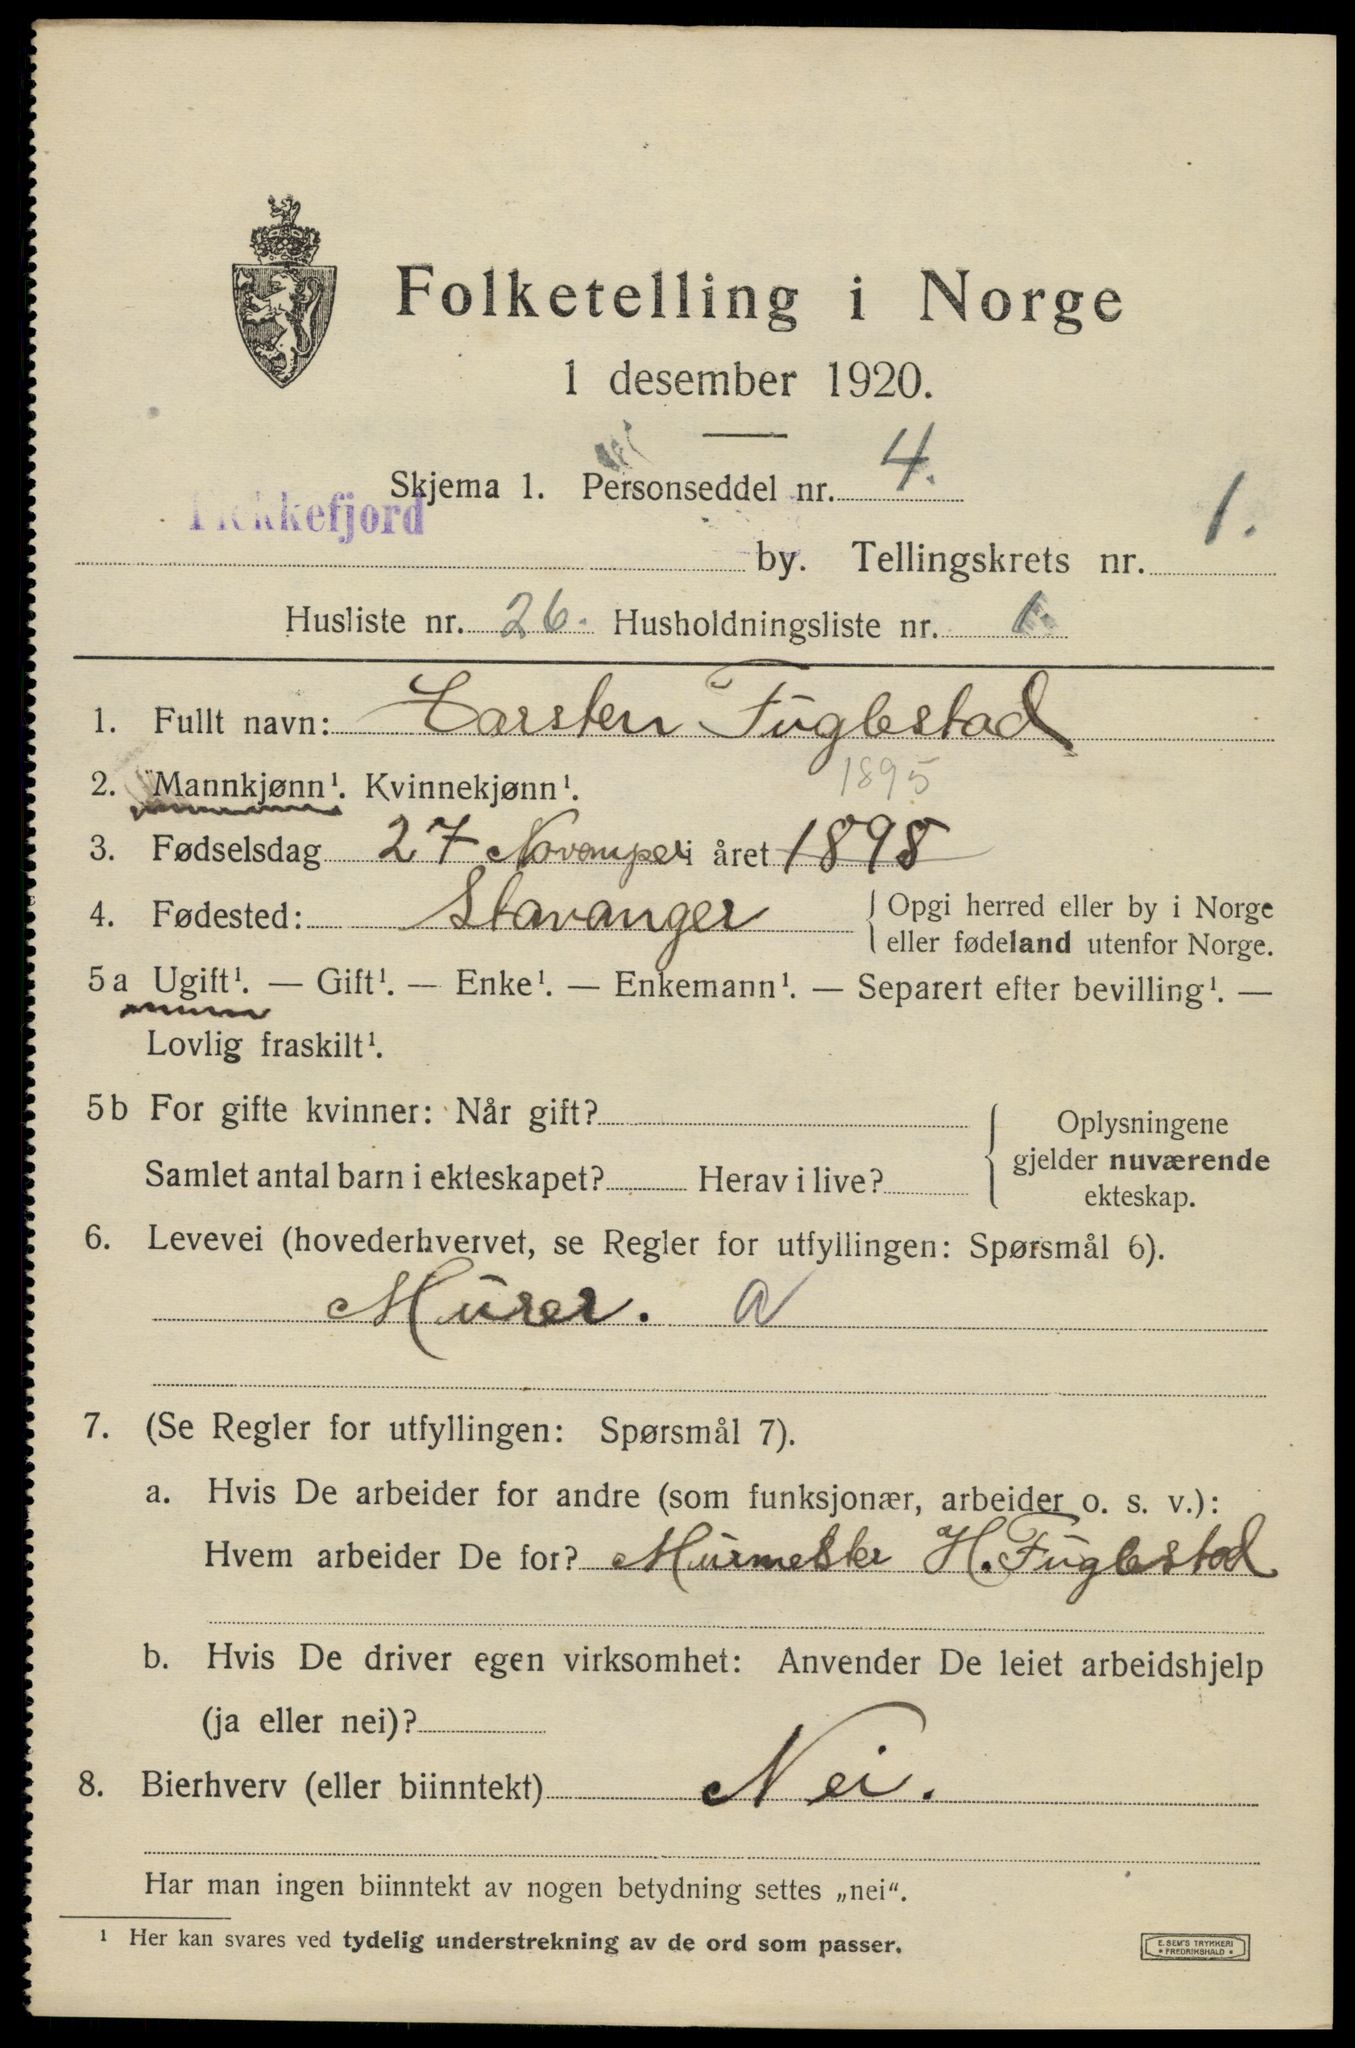 Folketelling i Norge
1 desember 1920.
Skjema 1. Personseddel nr. 4.
Flekkefjord
by. Tellingskrets nr. 1.
Husliste nr. 26. Husholdningsliste nr. 1.
1. Fullt navn: Carsten Fuglestad
2. Mannkjønn¹. Kvinnekjønn¹.
1895
3. Fødselsdag 27 Novemper i året 1898
4. Fødested: Stavanger
Opgi herred eller by i Norge
eller fødeland utenfor Norge.
5a Ugift¹. — Gift¹. — Enke¹. — Enkemann¹. — Separert efter bevilling¹. —
Lovlig fraskilt¹.
5b For gifte kvinner: Når gift?
Samlet antal barn i ekteskapet? Herav i live?
Oplysningene
gjelder nuværende
ekteskap.
6. Levevei (hovederhvervet, se Regler for utfyllingen: Spørsmål 6).
Murer. a
7. (Se Regler for utfyllingen: Spørsmål 7).
a. Hvis De arbeider for andre (som funksjonær, arbeider o. s. v.):
Hvem arbeider De for? Murmester H. Fuglestad
b. Hvis De driver egen virksomhet: Anvender De leiet arbeidshjelp
(ja eller nei)?
8. Bierhverv (eller biinntekt) Nei.
Har man ingen biinntekt av nogen betydning settes „nei“.
¹ Her kan svares ved tydelig understrekning av de ord som passer.
E. SEM'S TRYKKERI
• FREDRIKSHALD •